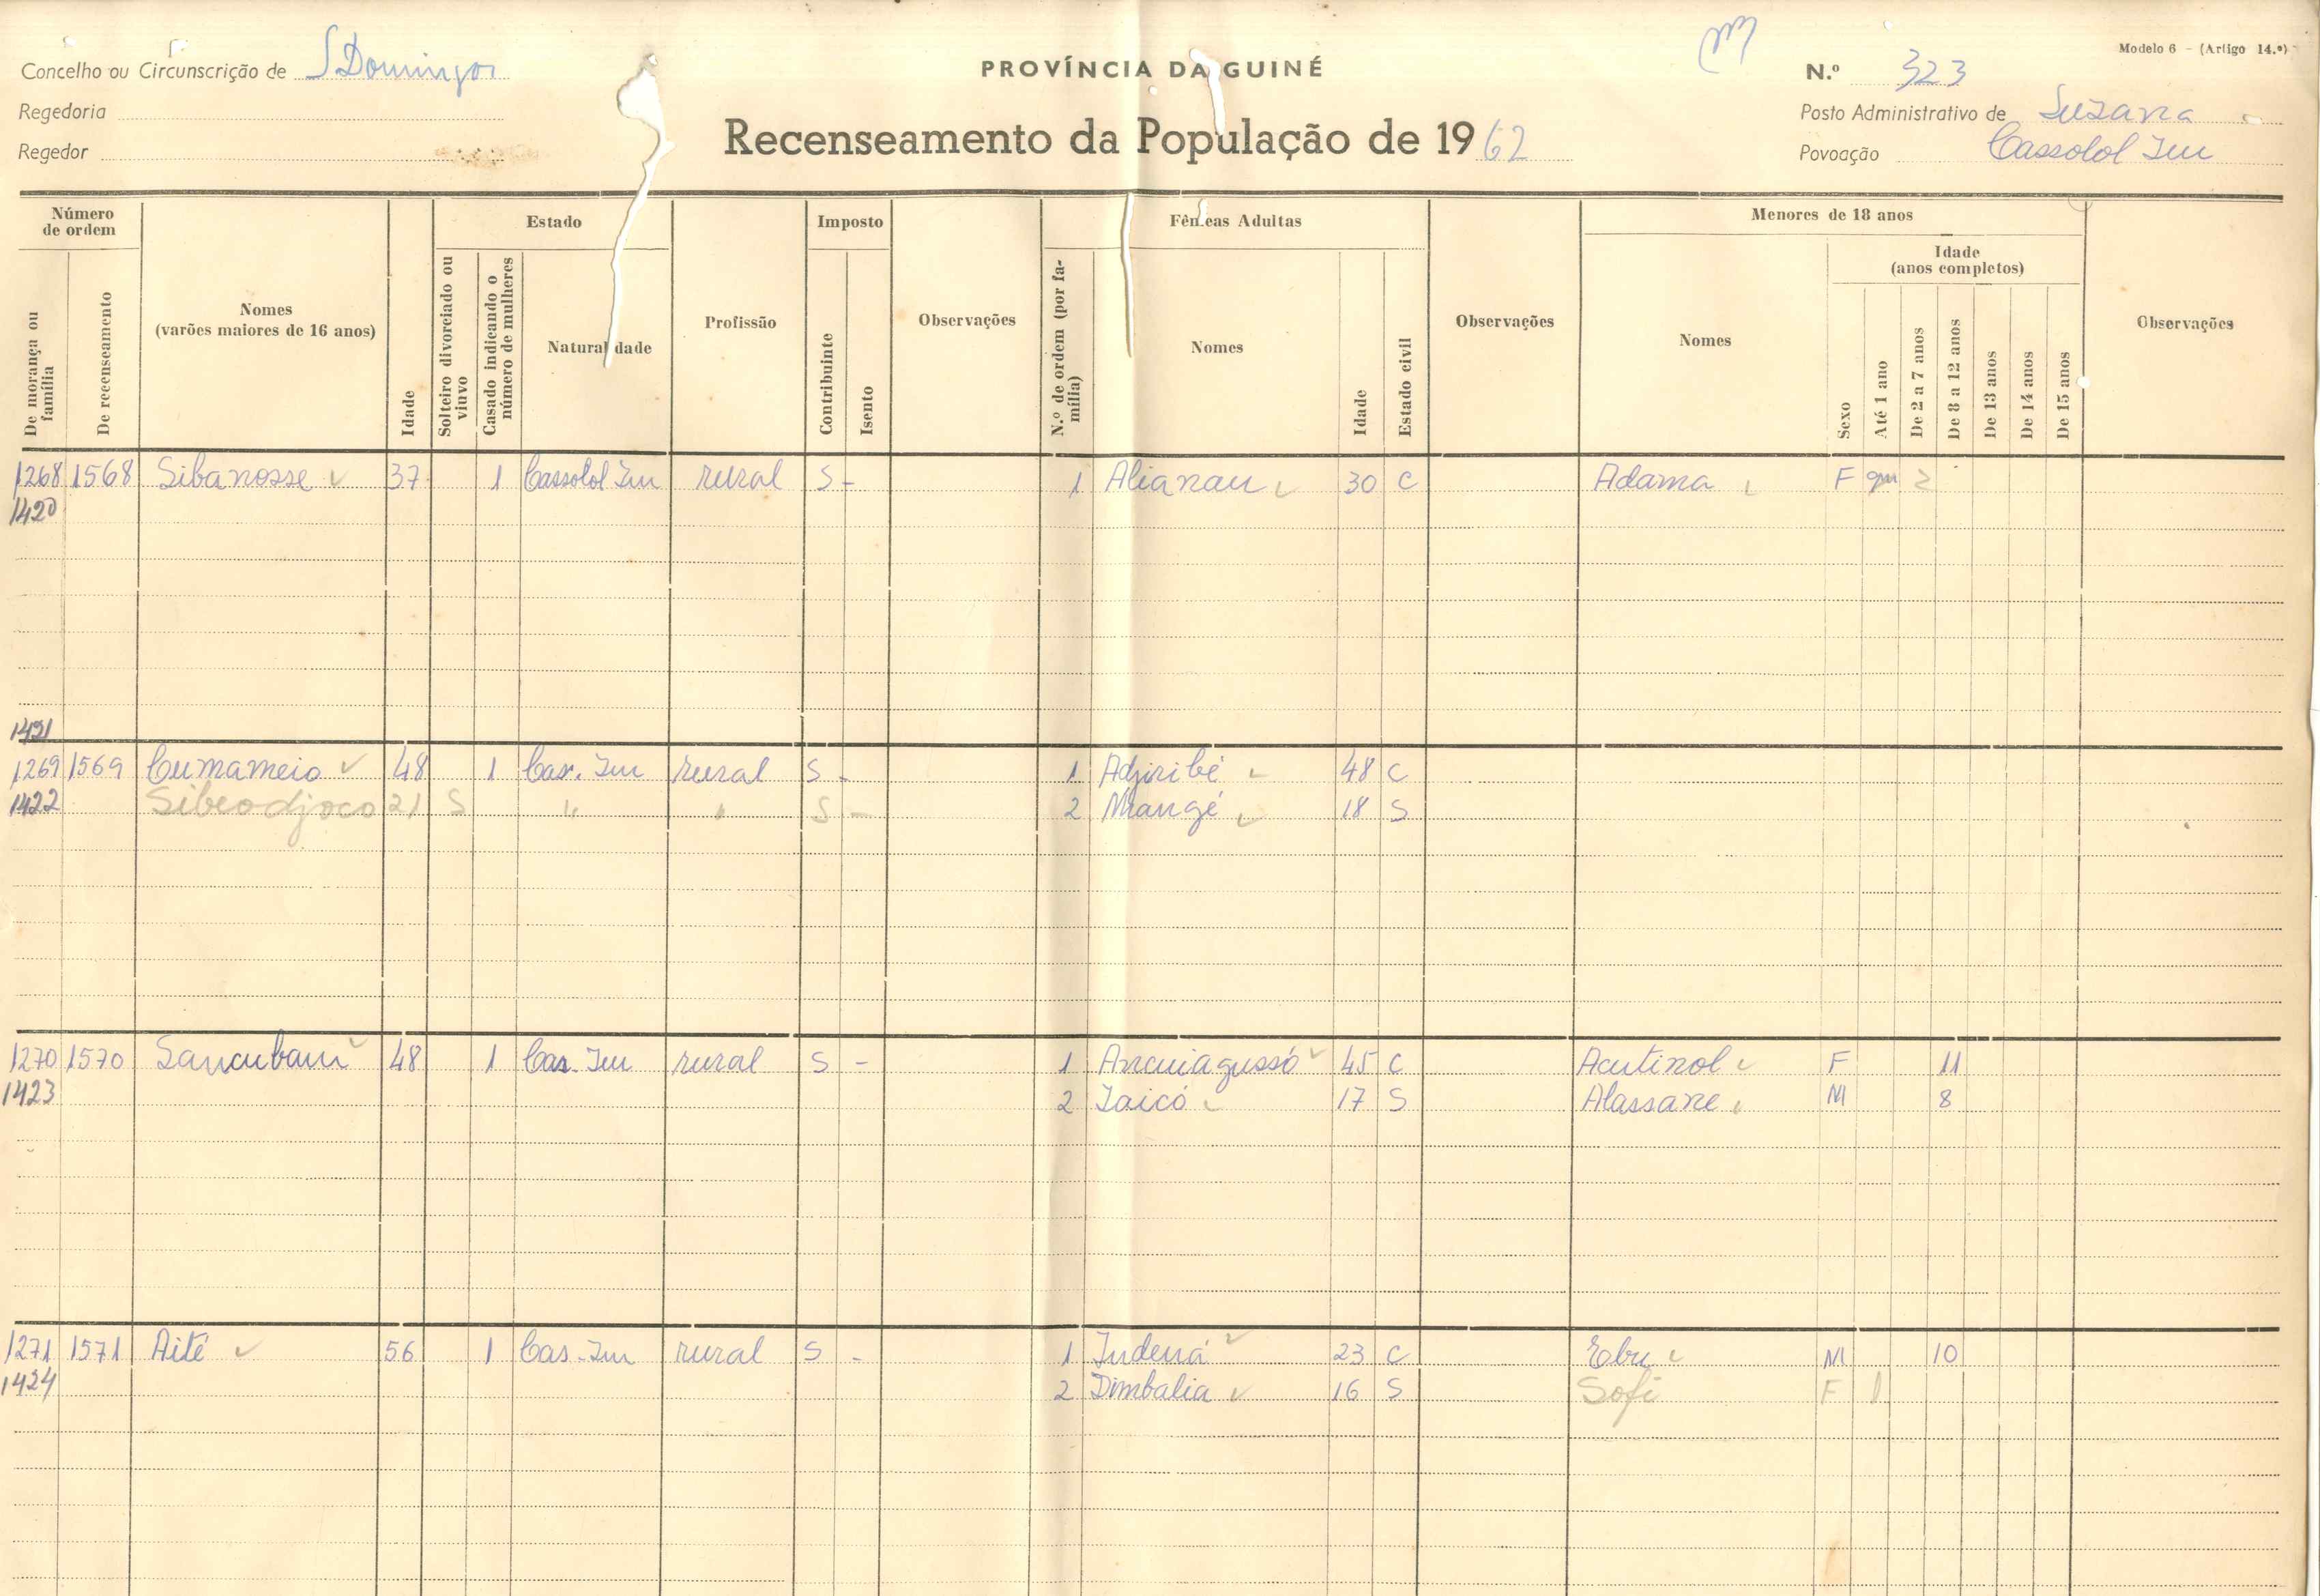 Modelo 6 - (Artigo 14.º)
Concelho ou Circunscrição de S Domingos
PROVÍNCIA DA GUINÉ
N.º 323
Regedoria
Posto Administrativo de Suzana
Regedor
Recenseamento da População de 1962
Povoação Cassolol Iu
Número de ordem
Estado
Imposto
Fêmeas Adultas
Menores de 18 anos
Idade (anos completos)
De morança ou família
De recenseamento
Nomes (varões maiores de 16 anos)
Idade
Solteiro divorciado ou viuvo
Casado indicando o número de mulheres
Naturalidade
Profissão
Contribuinte
Isento
Observações
N.º de ordem (por família)
Nomes
Idade
Estado civil
Observações
Nomes
Sexo
Até 1 ano
De 2 a 7 anos
De 8 a 12 anos
De 13 anos
De 14 anos
De 15 anos
Observações
1268 1568 Sibanosse 37 1 Cassolol Iu rural S - 1 Alianau 30 C Adama F 9m 2
1420
1421
1269 1569 Cumameio 48 1 Cas. Iu rural S - 1 Adjiribé 48 C
1422 Sibeodjoco 21 S " " S - 2 Mangé 18 S
1270 1570 Sancubani 48 1 Cas. Iu rural S - 1 Ancuiagussó 45 C Acutinol F 11
1423 2 Iaicó 17 S Alassane M 8
1271 1571 Aité 56 1 Cas. Iu rural S - 1 Indená 23 C Ebu M 10
1424 2 Dimbalia 16 S Sofi F 1